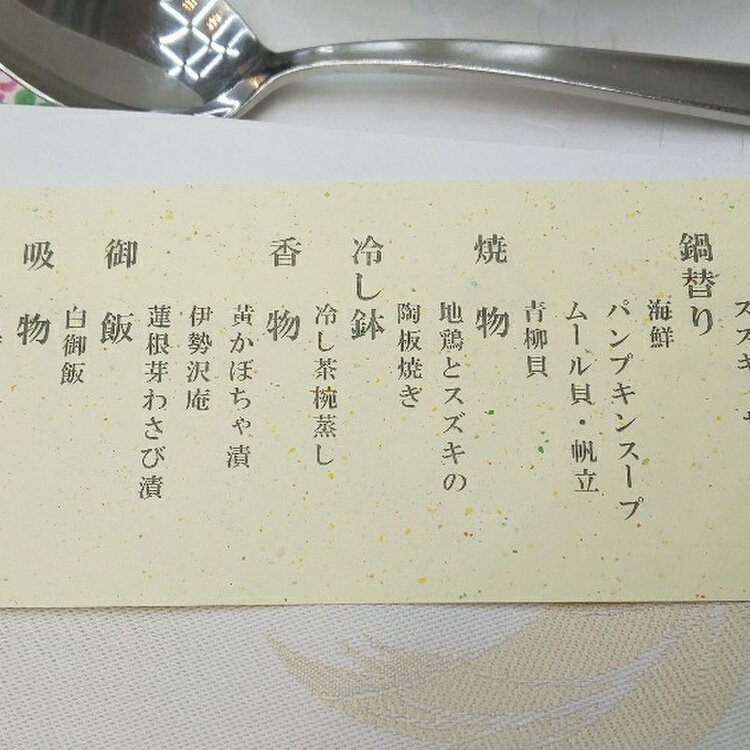 鍋替り
海鮮
パンプキンスープ
ムール貝・帆立
青柳貝
焼物
地鶏とスズキの
陶板焼き
冷し鉢
冷し茶椀蒸し
香物
黄かぼちゃ漬
伊勢沢庵
蓮根芽わさび漬
御飯
白御飯
吸物